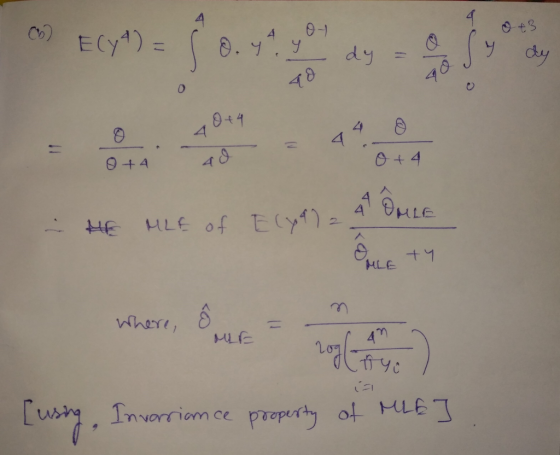 (b) E(y⁴) = ∫₀⁴ θ · y⁴ · y^(θ-1) / 4^θ dy = θ/4^θ ∫₀⁴ y^(θ+3) dy
= θ/(θ+4) · 4^(θ+4)/4^θ = 4⁴ · θ/(θ+4)
∴ MLE of E(y⁴) = 4⁴ θ̂_MLE / (θ̂_MLE + 4)
where, θ̂_MLE = n / log(4ⁿ / π_(i=1) yᵢ)
[using, Invariance property of MLE]